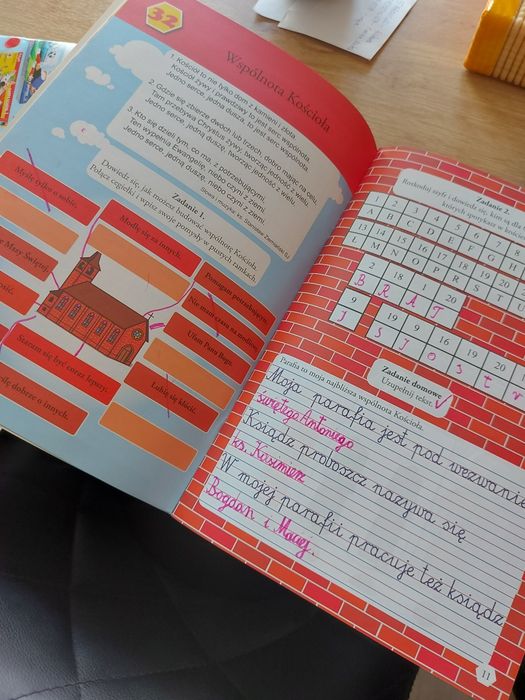 32
Wspólnota Kościoła
1. Kościół to nie tylko dom z kamieni i złota
Kościół żywy i prawdziwy to jest serc wspólnota.
Jedno serce, jedna dusza, to jest serc wspólnota.
2. Gdzie się zbierze dwóch lub trzech, dobro mając na celu,
Tam przebywa Chrystus żywy, tworząc jedność z wielu.
Jedno serce, jedną duszę, tworząc jedność z wielu.
3. Kto się dzieli tym, co ma, z potrzebującymi,
Ten wypełnia Ewangelię, niebo czyni z ziemi.
Jedno serce, jedną duszę, niebo czyni z ziemi.
Słowa i muzyka: ks. Stanisław Ziemiański SJ
Zadanie 1.
Dowiedz się, jak możesz budować wspólnotę Kościoła.
Połącz cegiełki i wpisz swoje pomysły w pustych ramkach.
Myślę tylko o sobie.
Modlę się za innych.
Pomagam potrzebującym.
Mszy Świętej.
Nie mam czasu na modlitwę.
Ufam Panu Bogu.
Staram się być coraz lepszy.
Lubię się kłócić.
dobrze o innych.
Zadanie 2.
Rozkoduj szyfr i dowiedz się, kim są dla
których spotykasz w kościele
1 2 3 4 5 6 7 8
A B C D E F G H
13 14 15 16 17 18 19 20
L M N O P R S T
2 18 1 20
B R A T
9 19 9 16 19 20
I S I O S T
Zadanie domowe
Uzupełnij tekst.
Parafia to moja najbliższa wspólnota Kościoła.
Moja parafia jest pod wezwaniem
świętego Antoniego
Ksiądz proboszcz nazywa się
ks. Kazimierz
W mojej parafii pracuje też ksiądz
Bogdan i Maciej.
11